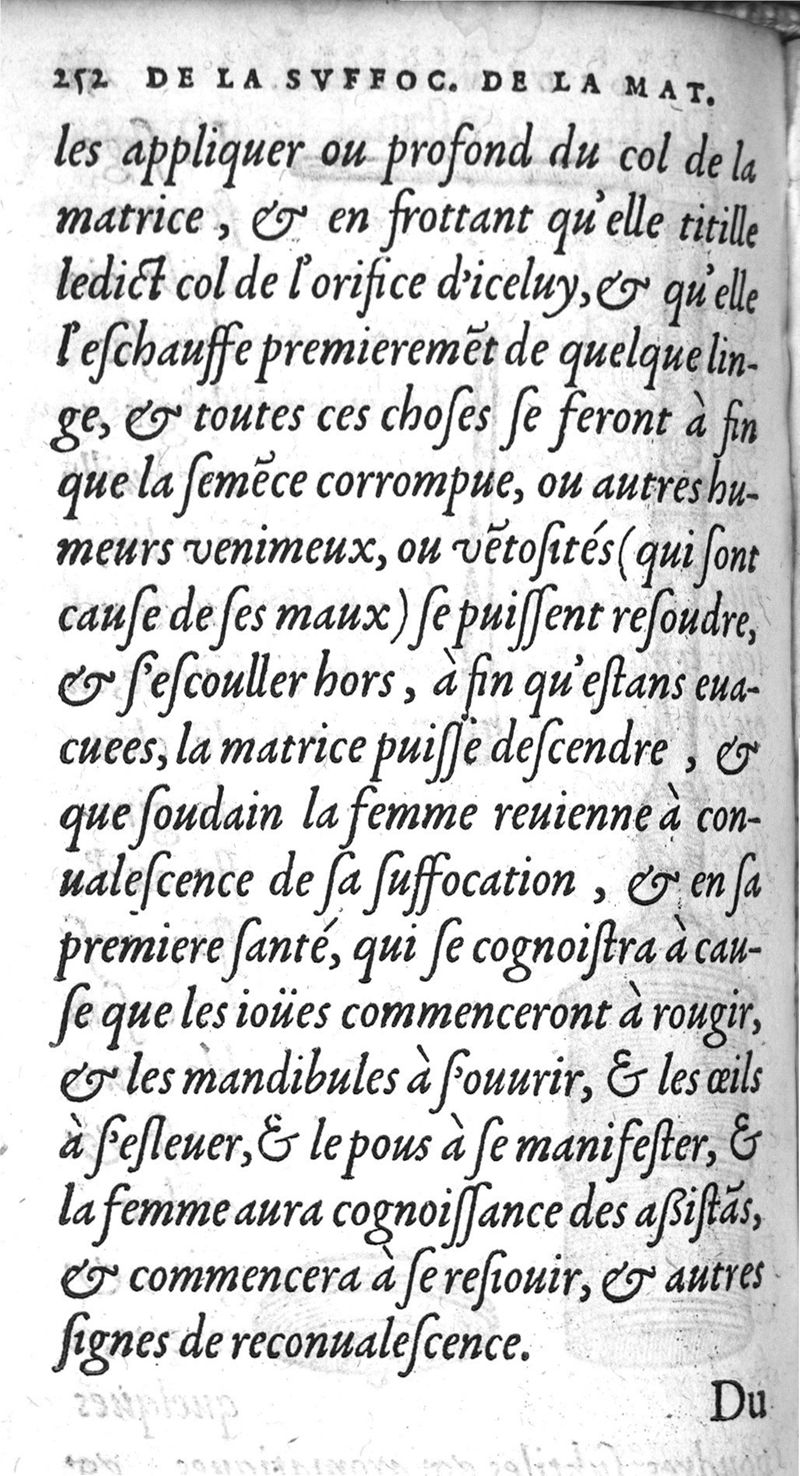 252 DE LA SVFFOC. DE LA MAT.
les appliquer ou profond du col de la
matrice, & en frottant qu'elle titille
ledict col de l'orifice d'iceluy, & qu'elle
l'eſchauffe premieremẽt de quelque lin-
ge, & toutes ces choſes ſe feront à fin
que la ſemẽce corrompue, ou autres hu-
meurs venimeux, ou vẽtoſités (qui ſont
cauſe de ſes maux) ſe puiſſent reſoudre,
& ſ'eſcouller hors, à fin qu'eſtans eua-
cuees, la matrice puiſſe deſcendre, &
que ſoudain la femme reuienne à con-
ualeſcence de ſa ſuffocation, & en ſa
premiere ſanté, qui ſe cognoiſtra à cau-
ſe que les ioües commenceront à rougir,
& les mandibules à ſ'ouurir, & les œils
à ſ'eſleuer, & le pous à ſe manifeſter, &
la femme aura cognoiſſance des aßiſtãs,
& commencera à ſe reſiouir, & autres
ſignes de reconualeſcence.
Du